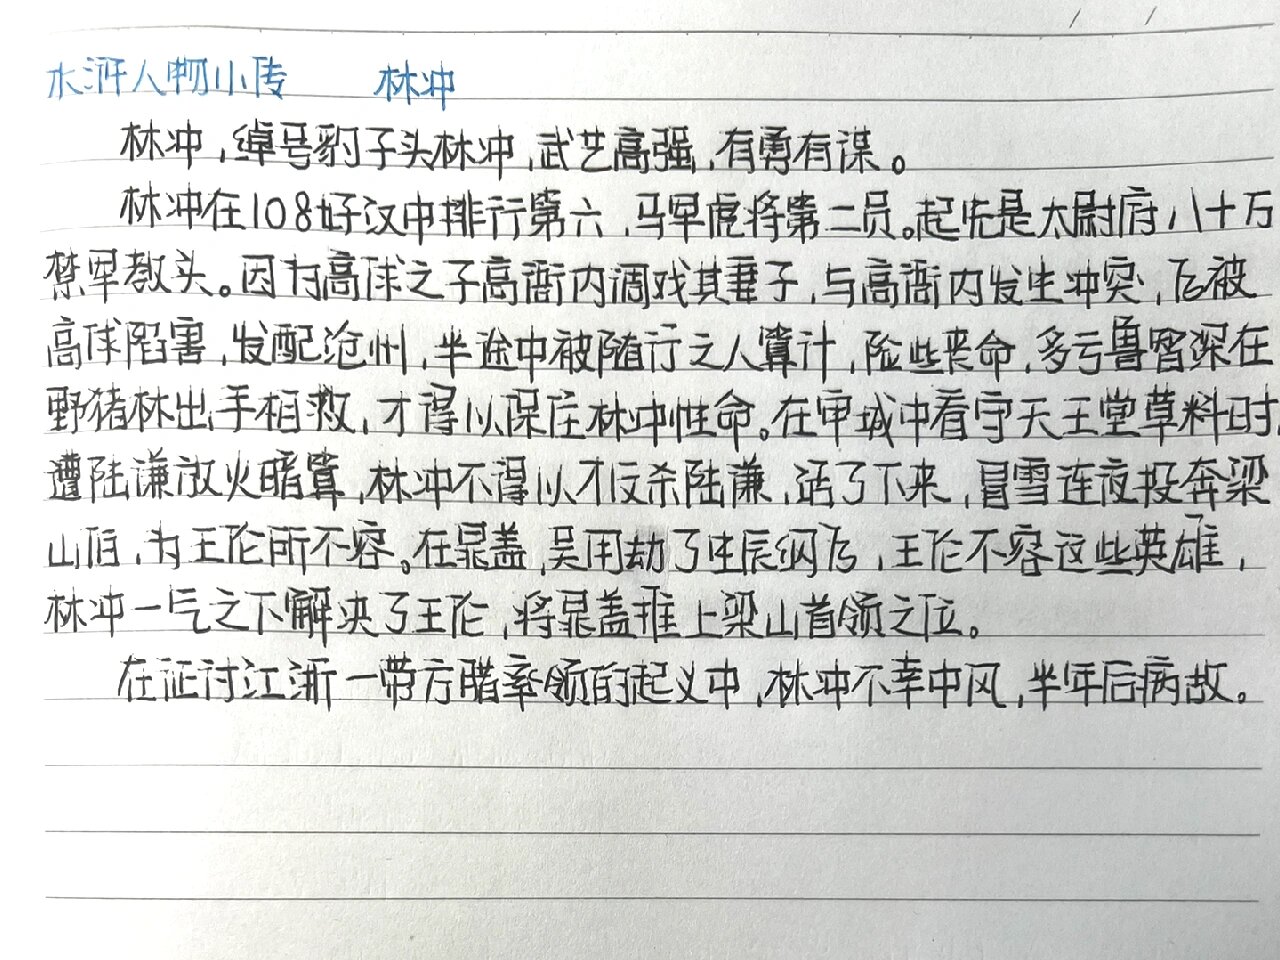 水浒人物小传 林冲
林冲,绰号豹子头林冲,武艺高强,有勇有谋。
林冲在108好汉中排行第六,马军虎将第二员。起先是太尉府八十万
禁军教头。因为高俅之子高衙内调戏其妻子,与高衙内发生冲突,后被
高俅陷害,发配沧州,半途中被随行之人算计,险些丧命,多亏鲁智深在
野猪林出手相救,才得以保住林冲性命。在牢城中看守天王堂草料时,
遭陆谦放火暗算,林冲不得以才反杀陆谦,活了下来,冒雪连夜投奔梁
山泊,为王伦所不容。在晁盖,吴用劫了生辰纲后,王伦不容这些英雄,
林冲一气之下解决了王伦,将晁盖推上梁山首领之位。
在征讨江浙一带方腊率领的起义中,林冲不幸中风,半年后病故。